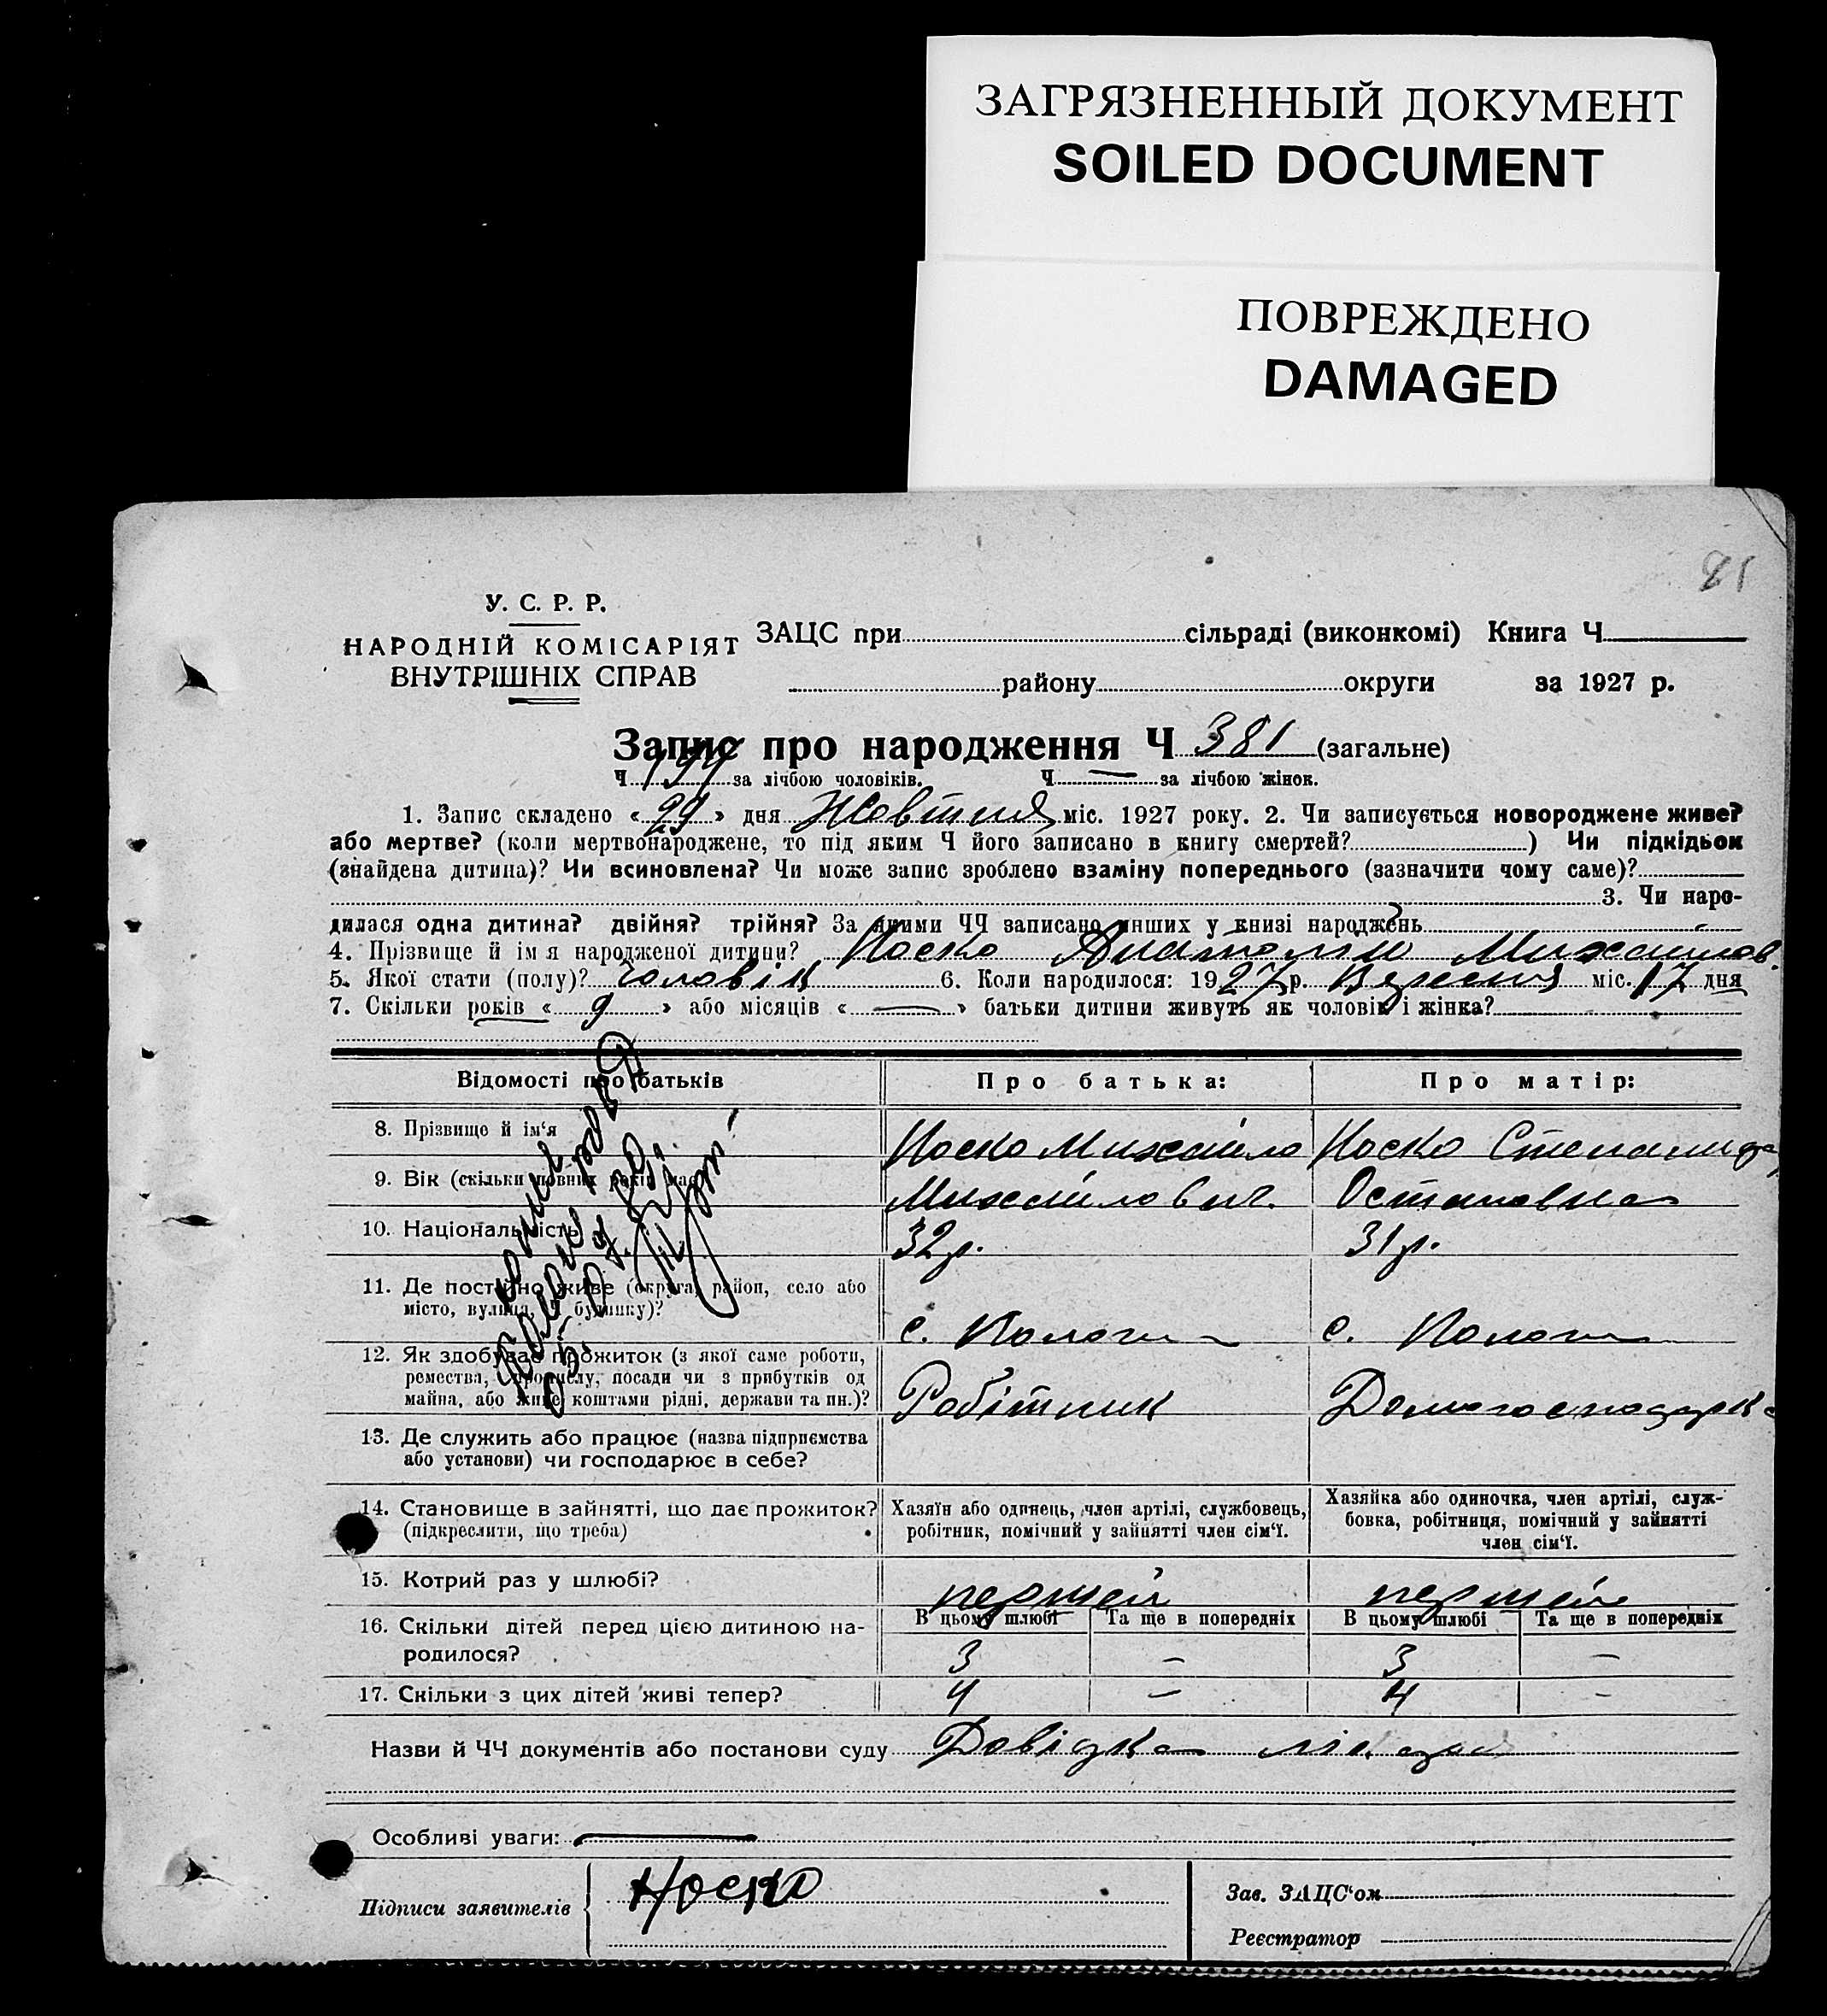 ЗАГРЯЗНЕННЫЙ ДОКУМЕНТ
SOILED DOCUMENT
ПОВРЕЖДЕНО
DAMAGED
У. С. Р. Р.
НАРОДНІЙ КОМІСАРІЯТ
ВНУТРІШНІХ СПРАВ
ЗАЦС при сільраді (виконкомі) Книга Ч
району округи за 1927 р.
Запис про народження Ч 381 (загальне)
Ч 194 за лічбою чоловіків. Ч — за лічбою жінок.
1. Запис складено «29» дня Жовтня міс. 1927 року. 2. Чи записується новороджене живе?
або мертве? (коли мертвонароджене, то під яким Ч його записано в книгу смертей? ) Чи підкідьок
(знайдена дитина)? Чи всиновлена? Чи може запис зроблено взаміну попереднього (зазначити чому саме)?
3. Чи наро-
дилася одна дитина? двійня? трійня? За якими ЧЧ записано инших у книзі народжень
4. Прізвище й ім'я народженої дитини? Носко Анатолій Михайлов.
5. Якої стати (полу)? Чоловік 6. Коли народилося: 1927 р. Вересня міс. 17 дня
7. Скільки років « 9 » або місяців « — » батьки дитини живуть як чоловік і жінка?
Відомості про батьків
Про батька:
Про матір:
8. Прізвище й ім'я
Носко Михайло
Носко Степанида
9. Вік (скільки повних років має)
Михайлович.
Остаповна
10. Національність
32 р.
31 р.
11. Де постійно живе (округа, район, село або
місто, вулиця, Ч будинку)?
с. Пологи
с. Пологи
12. Як здобуває прожиток (з якої саме роботи,
ремества, промислу, посади чи з прибутків од
майна, або живе коштами рідні, держави та ин.)?
Робітник
Домогосподарка
13. Де служить або працює (назва підприємства
або установи) чи господарює в себе?
14. Становище в зайнятті, що дає прожиток?
(підкреслити, що треба)
Хазяїн або одинець, член артілі, службовець,
робітник, помічний у зайнятті член сім'ї.
Хазяйка або одиночка, член артілі, служ-
бовка, робітниця, помічний у зайнятті
член сім'ї.
15. Котрий раз у шлюбі?
першей
першей
16. Скільки дітей перед цією дитиною на-
родилося?
В цьому шлюбі Та ще в попередніх В цьому шлюбі Та ще в попередніх
3 – 3 –
17. Скільки з цих дітей живі тепер?
4 – 4 –
Назви й ЧЧ документів або постанови суду Довідка
Особливі уваги: —
Підписи заявителів
Носко
Зав. ЗАЦС'ом
Реєстратор